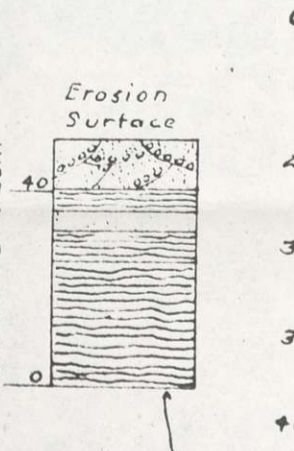 Erosion
Surface
40
0
3
3